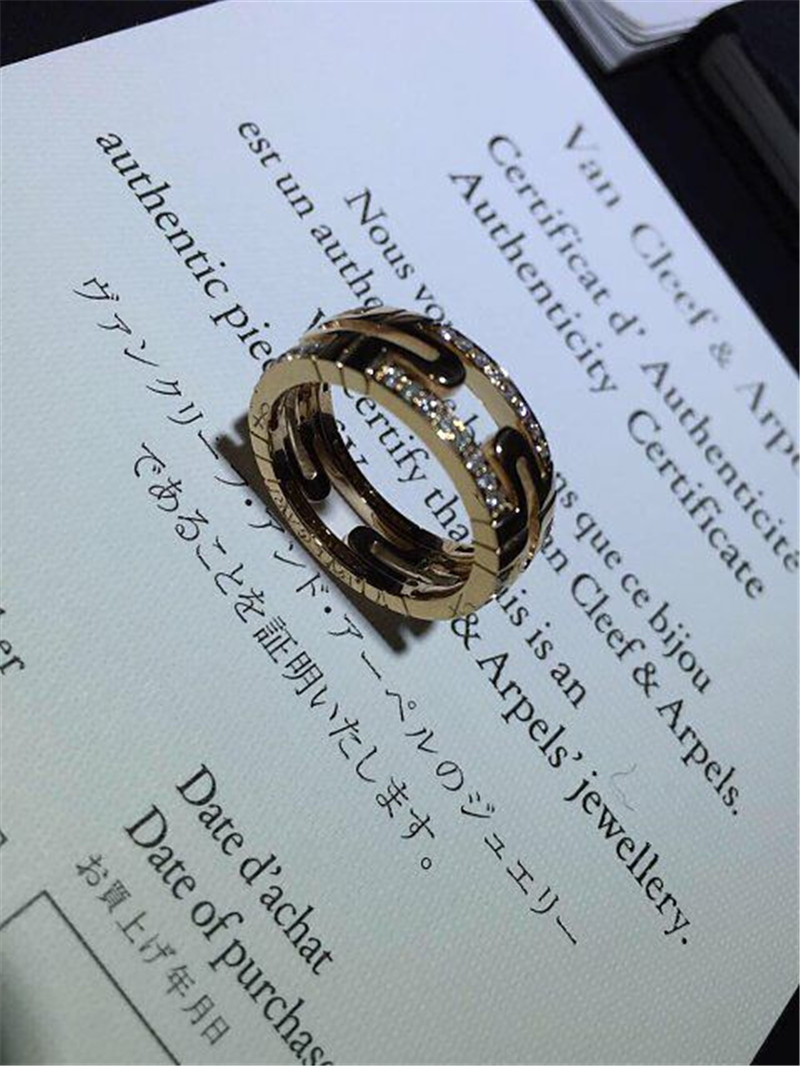 Van Cleef & Arpe
Certificat d' Authenticité
Authenticity Certificate
Nous vo ns que ce bijou
est un authe an Cleef & Arpels.
certify tha his is an
authentic piec & Arpels' jewellery.
ヴァン クリーフ・アンド・アーペルのジュエリー
であることを証明いたします。
Date d'achat
Date of purchase
お買上げ年月日